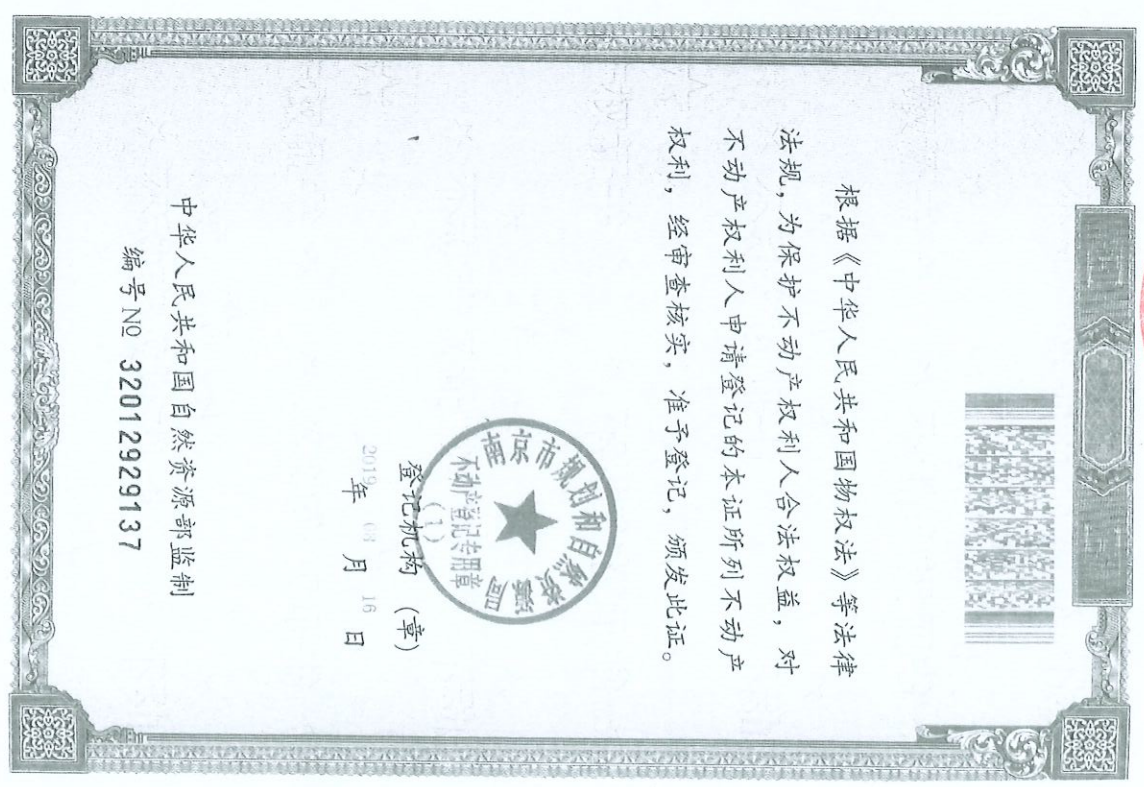 根据《中华人民共和国物权法》等法律
法规，为保护不动产权利人合法权益，对
不动产权利人申请登记的本证所列不动产
权利，经审查核实，准予登记，颁发此证。
南京市规划和自然资源局
不动产登记专用章
(1)
登记机构（章）
2019年 08月 16日
中华人民共和国自然资源部监制
编号№ 32012929137